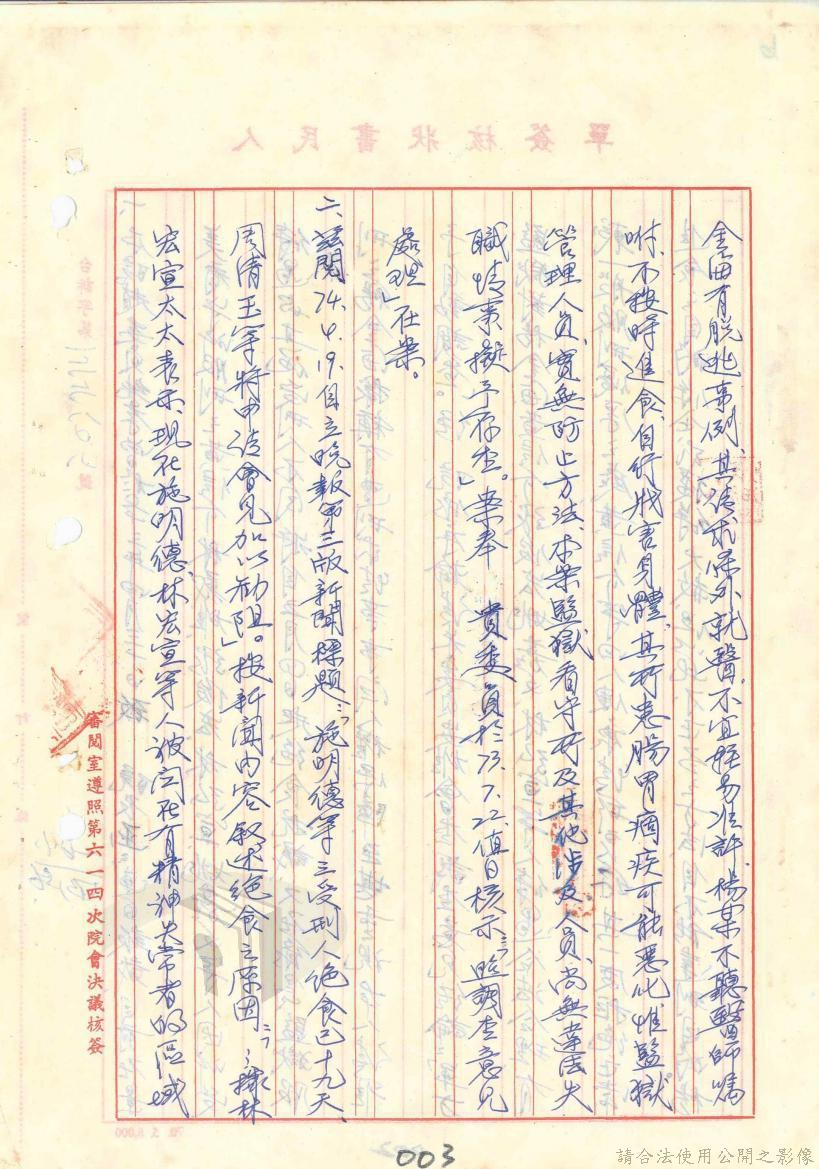 金田有脱逃事例、其請求保外就醫、不宜輕易准許、楊某不聽醫師囑
咐、不按時進食、自行戕害身體、其所患腸胃痼疾可能惡化、惟監獄
管理人員、實無防止方法、本案監獄看守所及其他涉及人員、尚無違法失
職情事、擬予存查。」案奉 貴委員於73.7.22.值日核示:「照調查意見
處理」在案。
二、茲閱74.4.19.自立晚報第三版新聞標題:「施明德等三受刑人絕食已十九天、
周清玉等將申請會見加以勸阻」。按新聞內容敘述絕食之原因:「、據林
宏宣太太表示、現在施明德、林宏宣等人被関在有精神失常者的區域
審閱室遵照第六一四次院會決議核簽
人民書狀核簽單
003
請合法使用公開之影像